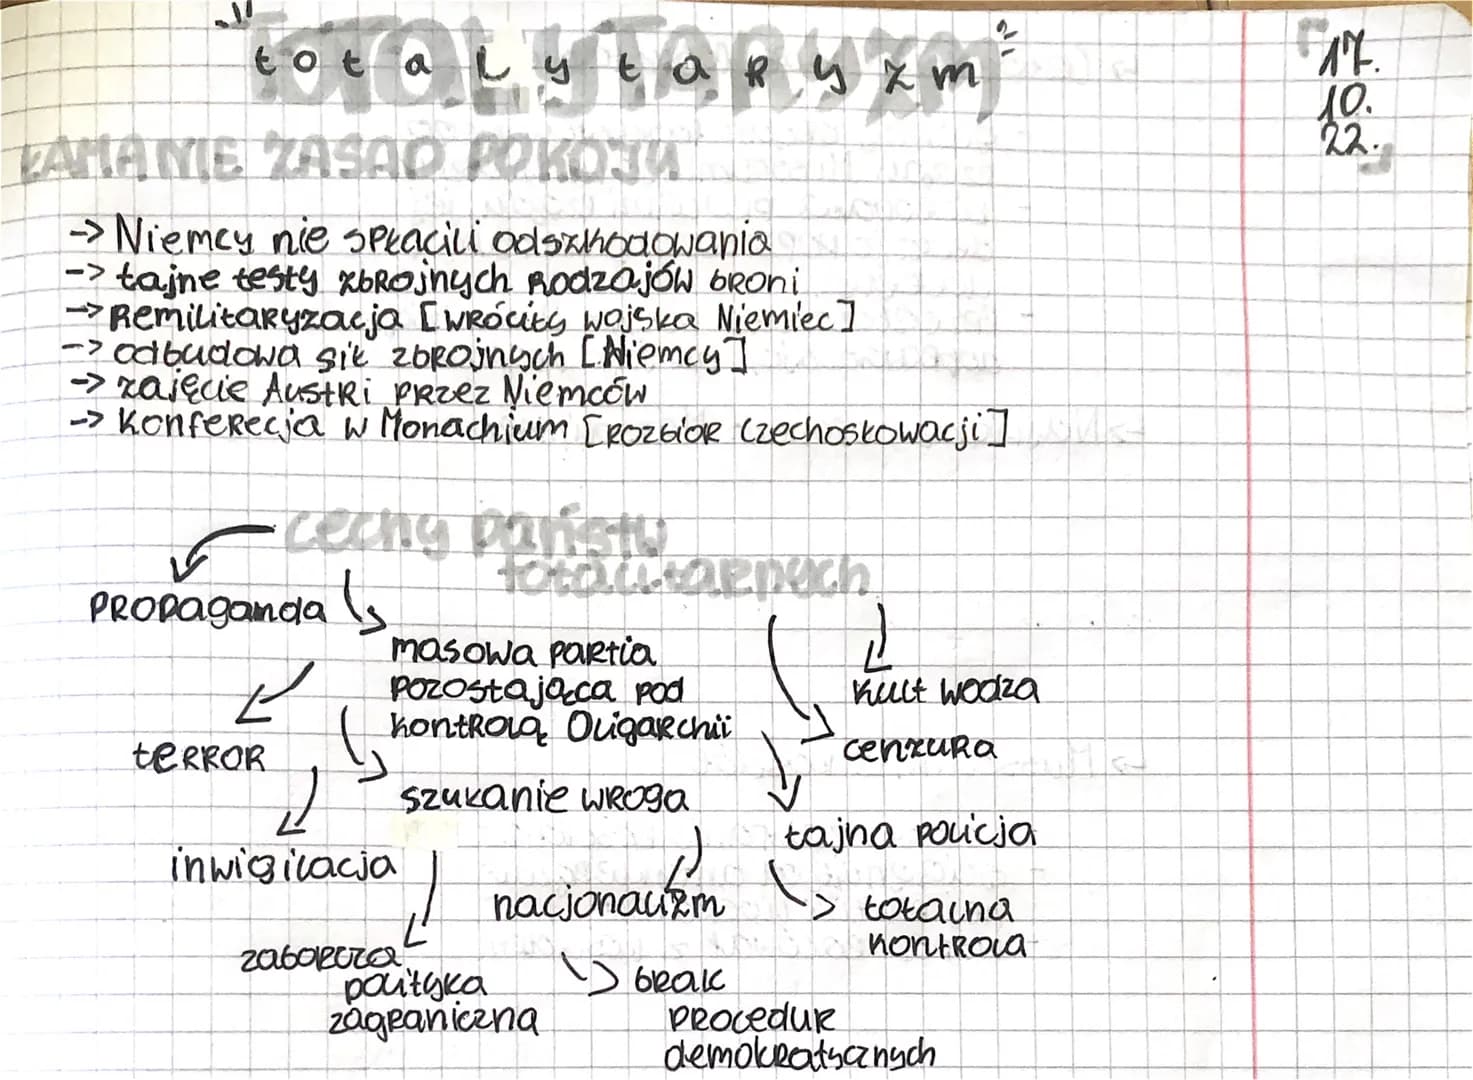 "totalytaryzm"
17.
10.
22.
ŁAMANIE ZASAD POKOJU
-> Niemcy nie spłacili odszkodowania
-> tajne testy zbrojnych rodzajów broni
-> Remilitaryzacja [wróciły wojska Niemiec]
-> odbudowa sił zbrojnych [Niemcy]
-> zajęcie Austri przez Niemców
-> Konferecja w Monachium [rozbior Czechosłowacji]
cechy państw
totalitarnych
propaganda
masowa partia
pozostająca pod
kontrolą Oligarchii
kult wodza
cenzura
terror
szukanie wroga
tajna policja
inwigilacja
nacjonalizm
totalna
kontrola
zaborcza
polityka
zagraniczna
brak
procedur
demokratycznych